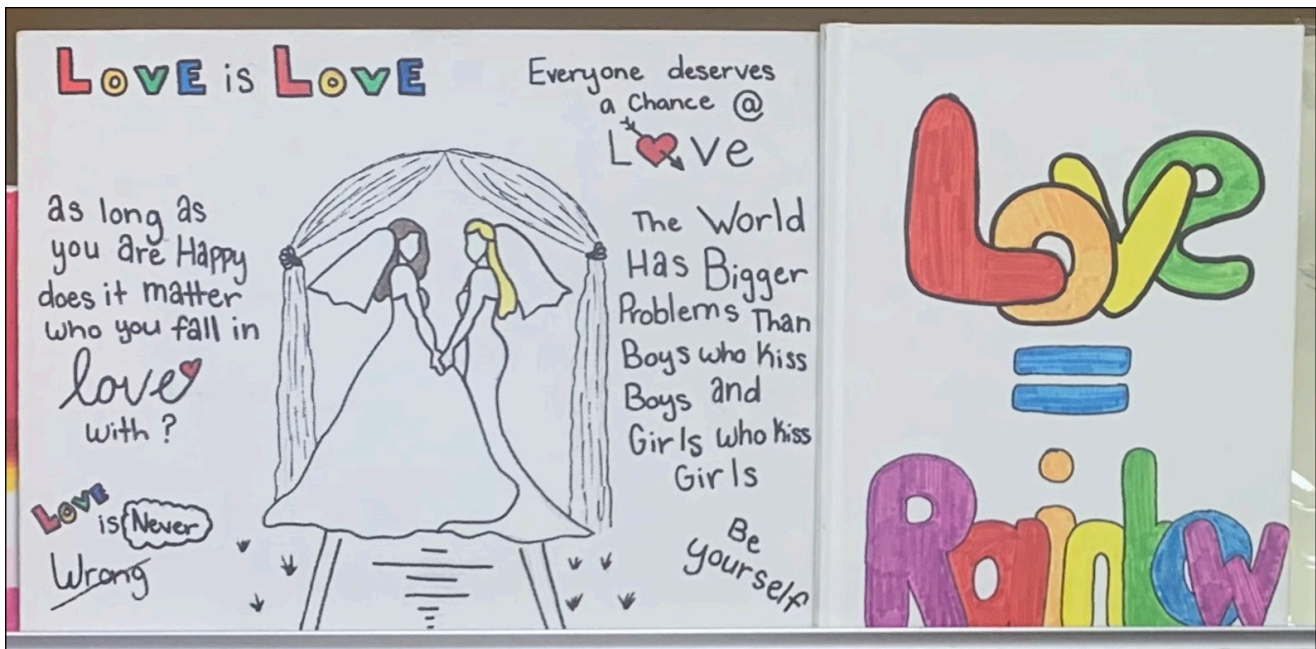 LOVE is LOVE
Everyone deserves
a Chance @
Love
as long as
you are Happy
does it matter
who you fall in
love
with?
The World
Has Bigger
Problems Than
Boys who Kiss
Boys and
Girls who Kiss
Girls
LOVE
is Never
Wrong
Be
yourself
Love
=
Rainbow